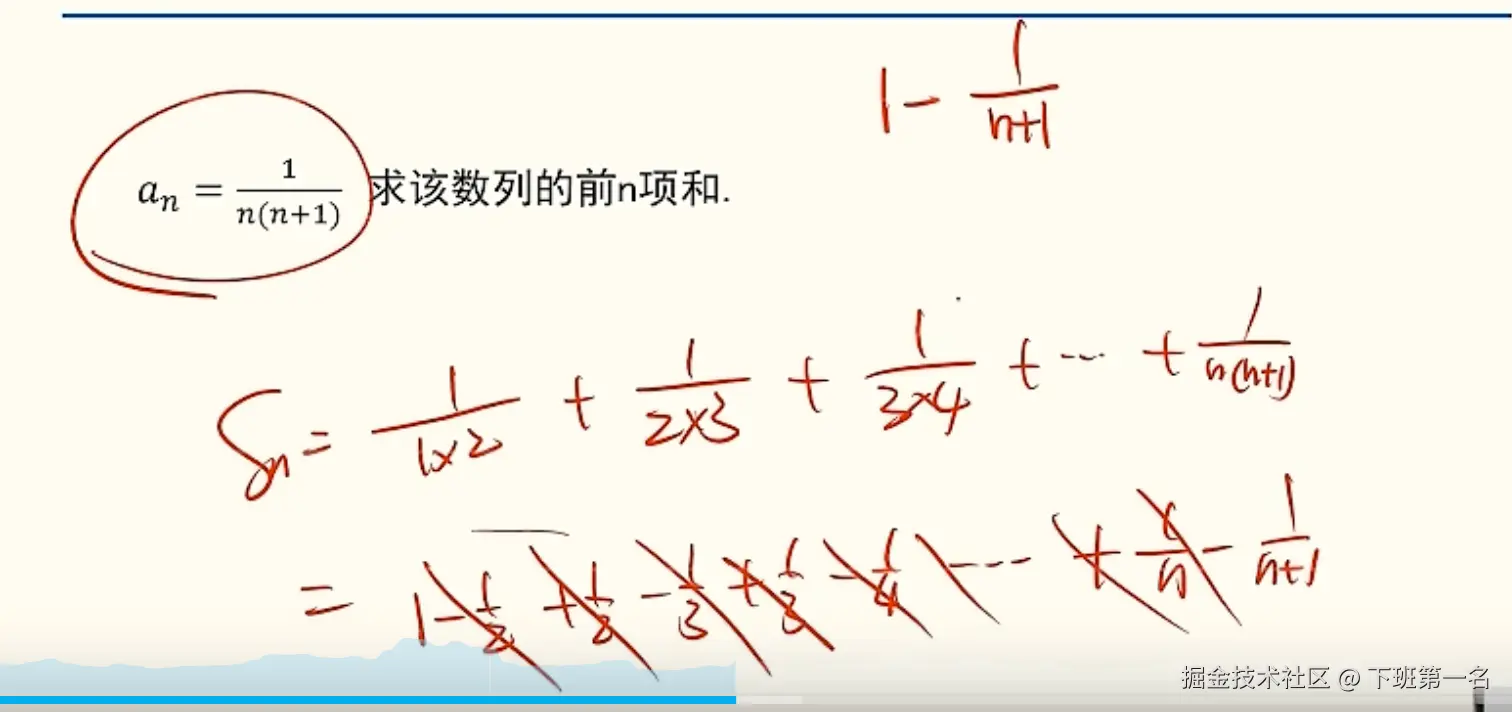 1 - 1/(n+1)
aₙ = 1/(n(n+1)) 求该数列的前n项和.
Sn = 1/(1×2) + 1/(2×3) + 1/(3×4) + ... + 1/(n(n+1))
= 1 - 1/2 + 1/2 - 1/3 + 1/3 - 1/4 ... + 1/n - 1/(n+1)
掘金技术社区 @ 下班第一名